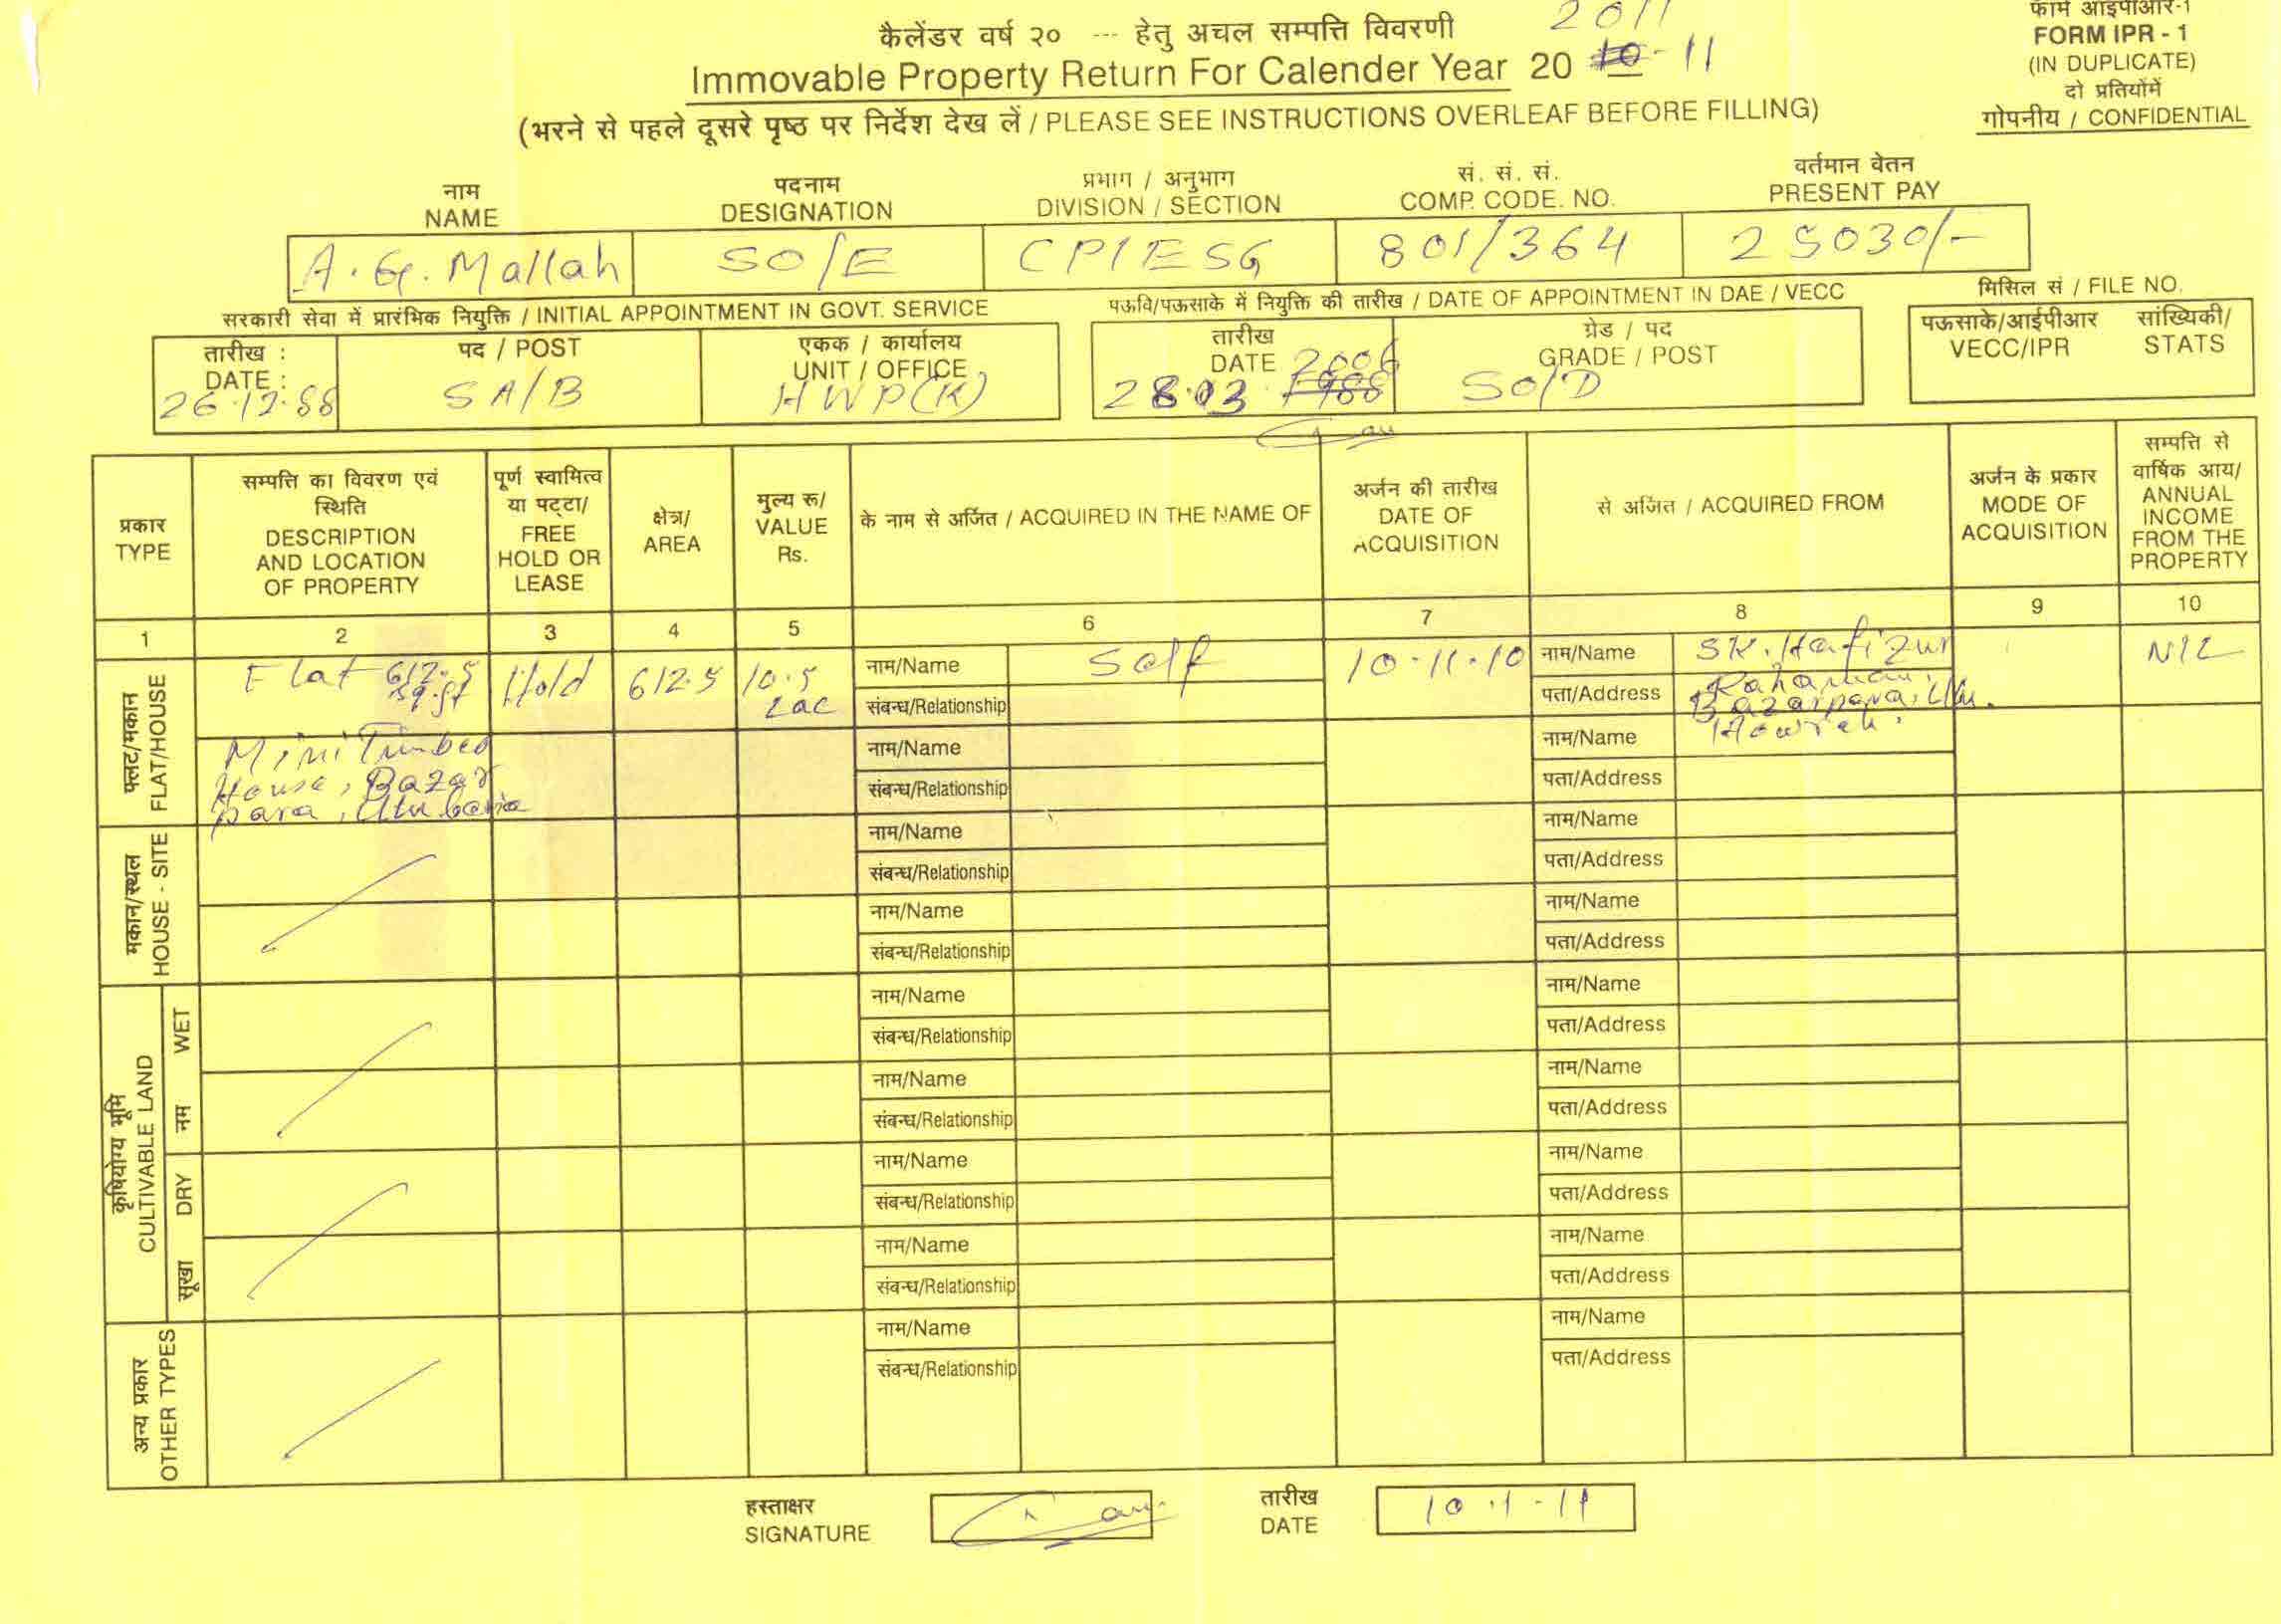 2011
कैलेंडर वर्ष २० --- हेतु अचल सम्पत्ति विवरणी
Immovable Property Return For Calender Year 20 10-11
(भरने से पहले दूसरे पृष्ठ पर निर्देश देख लें / PLEASE SEE INSTRUCTIONS OVERLEAF BEFORE FILLING)
फार्म आईपीआर-1
FORM IPR - 1
(IN DUPLICATE)
दो प्रतियोंमें
गोपनीय / CONFIDENTIAL
नाम पदनाम प्रभाग / अनुभाग सं. सं. सं. वर्तमान वेतन
NAME DESIGNATION DIVISION / SECTION COMP. CODE. NO. PRESENT PAY
A. G. Mallah SO/E CPIESG 801/364 25030/-
सरकारी सेवा में प्रारंभिक नियुक्ति / INITIAL APPOINTMENT IN GOVT. SERVICE
तारीख : पद / POST एकक / कार्यालय
DATE : UNIT / OFFICE
26.12.88 SA/B HWP(K)
पऊवि/पऊसाके में नियुक्ति की तारीख / DATE OF APPOINTMENT IN DAE / VECC
तारीख ग्रेड / पद
DATE 2006 GRADE / POST
28.03 1988 SO/D
मिसिल सं / FILE NO.
पऊसाके/आईपीआर सांख्यिकी/
VECC/IPR STATS
प्रकार
TYPE
सम्पत्ति का विवरण एवं
स्थिति
DESCRIPTION
AND LOCATION
OF PROPERTY
पूर्ण स्वामित्व
या पट्टा/
FREE
HOLD OR
LEASE
क्षेत्र/
AREA
मुल्य रू/
VALUE
Rs.
के नाम से अर्जित / ACQUIRED IN THE NAME OF
अर्जन की तारीख
DATE OF
ACQUISITION
से अर्जित / ACQUIRED FROM
अर्जन के प्रकार
MODE OF
ACQUISITION
सम्पत्ति से
वार्षिक आय/
ANNUAL
INCOME
FROM THE
PROPERTY
1 2 3 4 5 6 7 8 9 10
फ्लैट/मकान
FLAT/HOUSE
Flat 612.5
sq.ft
Hold
612.5
10.5
Lac
नाम/Name Self
संबन्ध/Relationship
10.11.10
नाम/Name SK. Hafizur
Rahaman,
पता/Address Bazarpara, Ulu.
Howrah.
NIL
Mini Timber
House, Bazar
para, Uluberia
नाम/Name
संबन्ध/Relationship
नाम/Name
पता/Address
मकान/स्थल
HOUSE - SITE
नाम/Name
संबन्ध/Relationship
नाम/Name
पता/Address
नाम/Name
संबन्ध/Relationship
नाम/Name
पता/Address
कृषियोग्य भूमि
CULTIVABLE LAND
नम WET
नाम/Name
संबन्ध/Relationship
नाम/Name
पता/Address
नाम/Name
संबन्ध/Relationship
नाम/Name
पता/Address
सूखा DRY
नाम/Name
संबन्ध/Relationship
नाम/Name
पता/Address
नाम/Name
संबन्ध/Relationship
नाम/Name
पता/Address
अन्य प्रकार
OTHER TYPES
नाम/Name
संबन्ध/Relationship
नाम/Name
पता/Address
हस्ताक्षर
SIGNATURE
तारीख
DATE
10.1-11